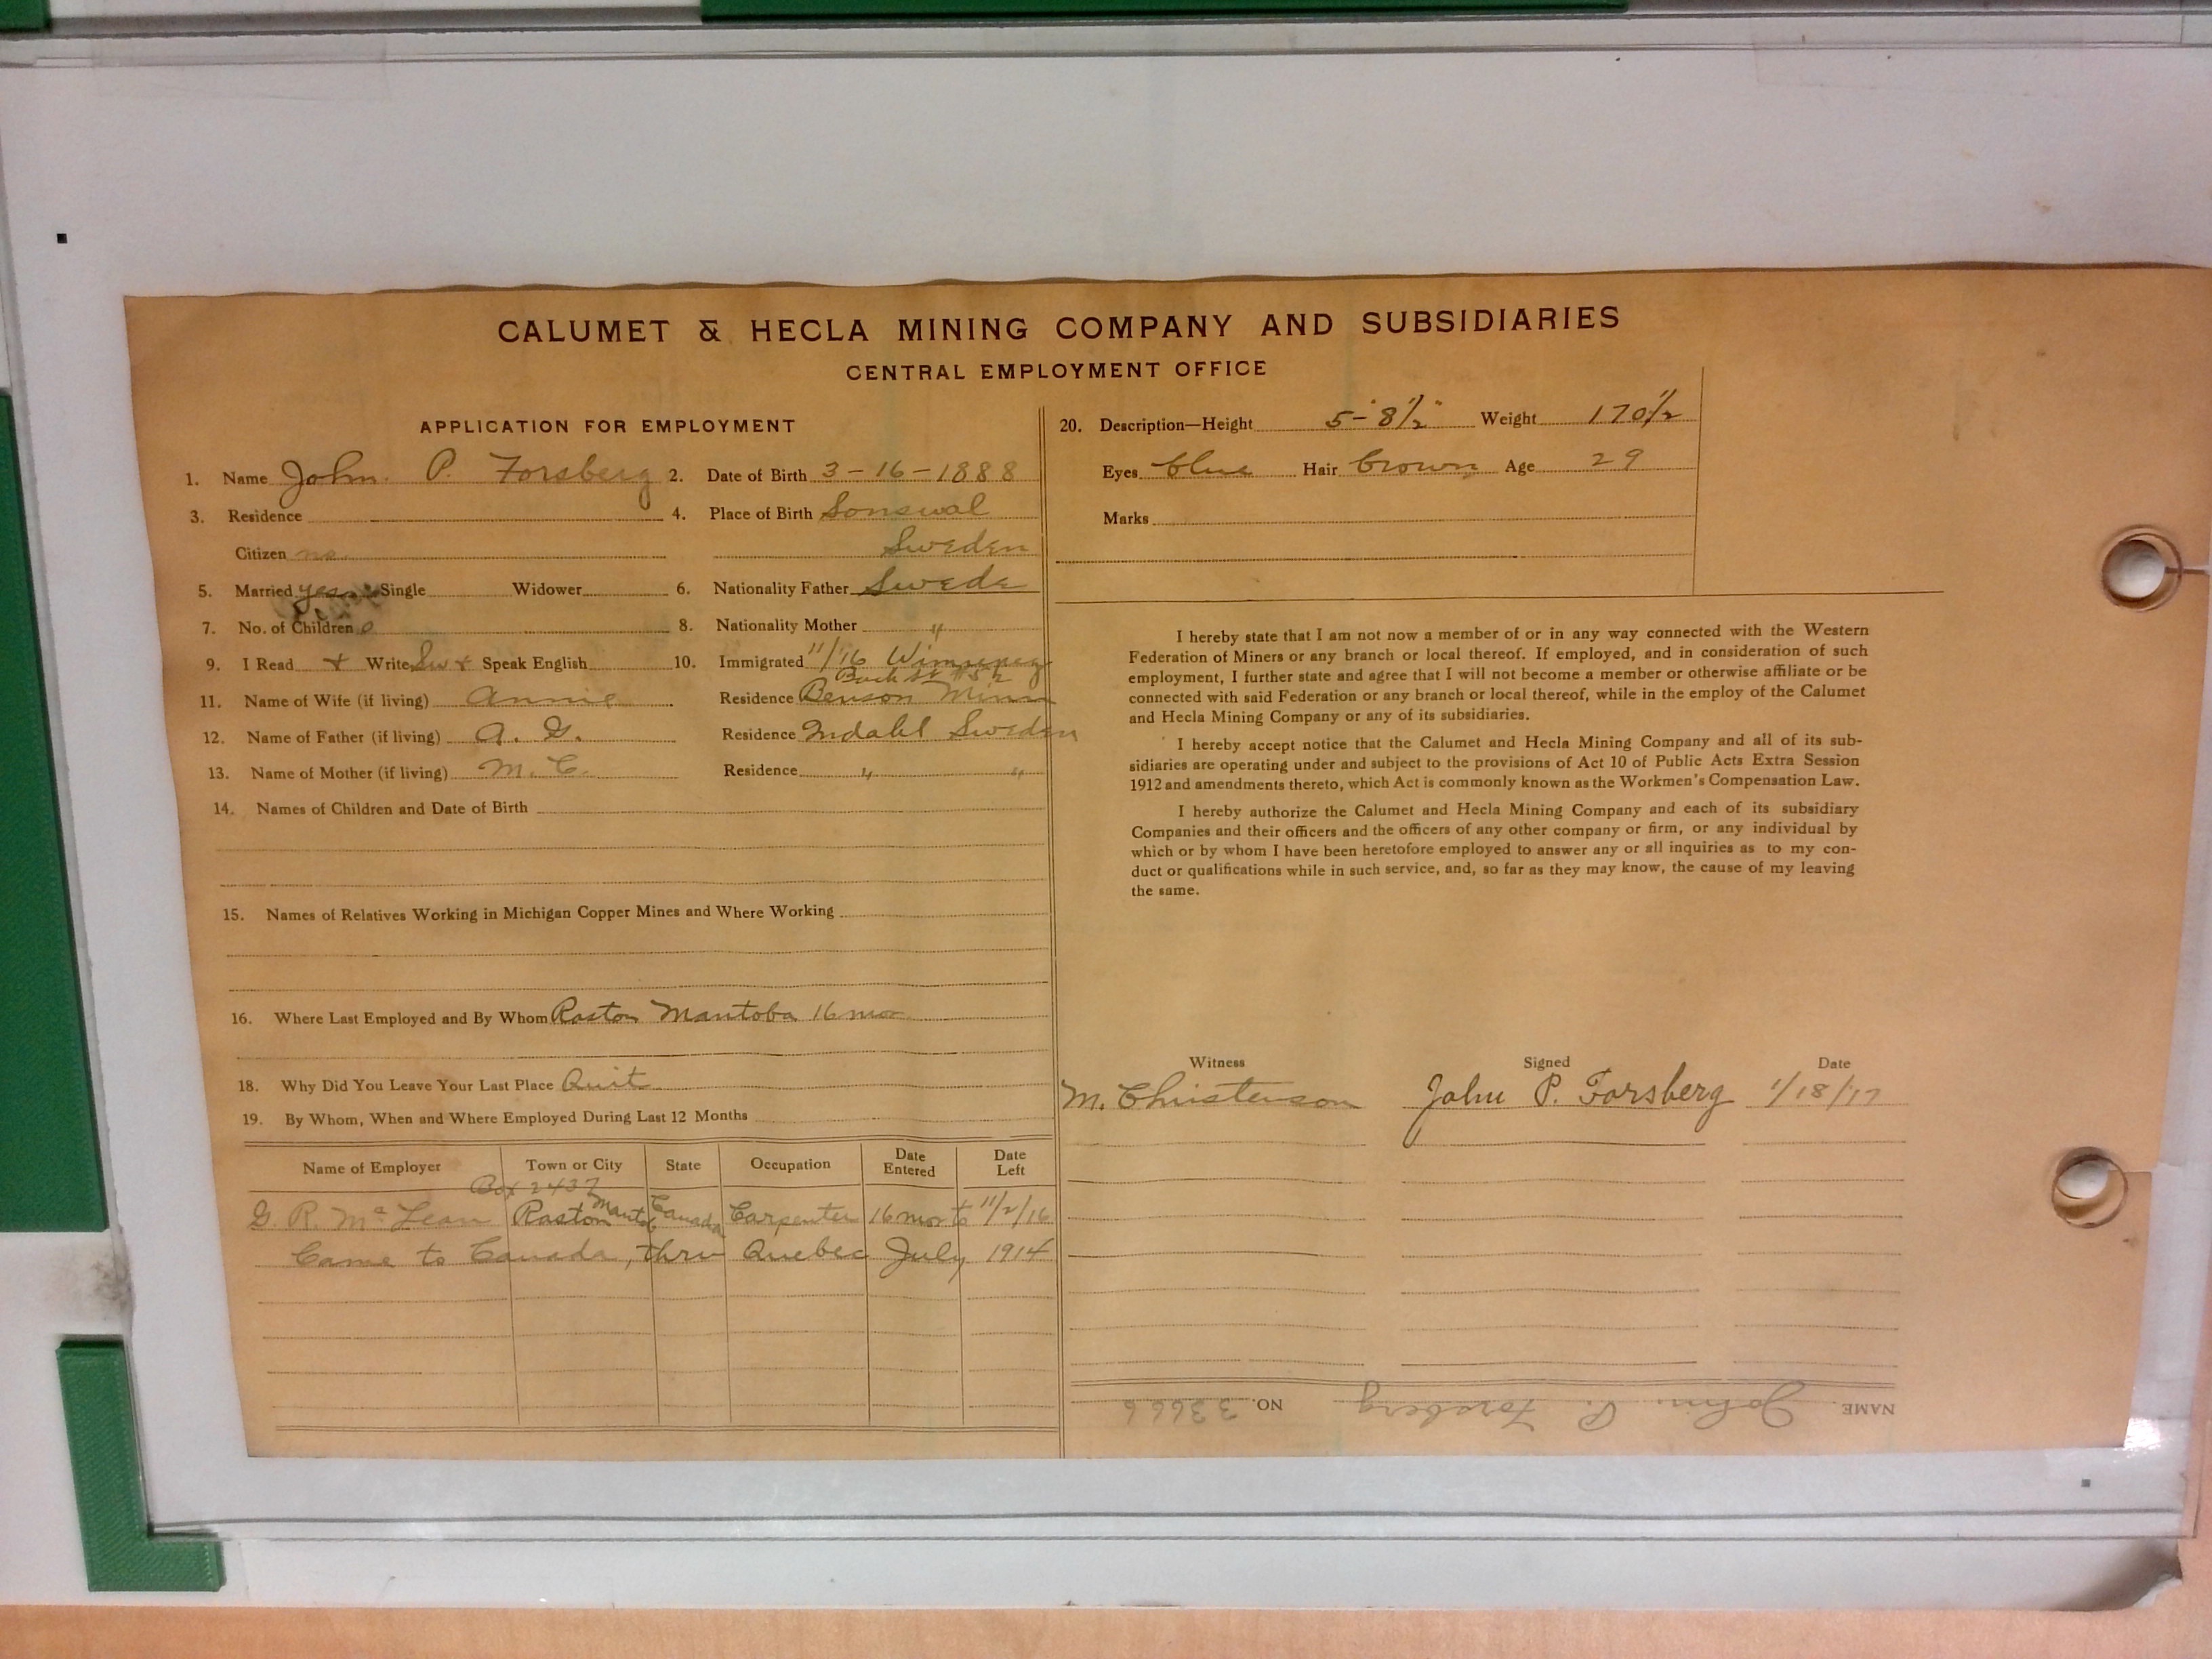 CALUMET & HECLA MINING COMPANY AND SUBSIDIARIES
CENTRAL EMPLOYMENT OFFICE
APPLICATION FOR EMPLOYMENT
1. Name John P. Forsberg 2. Date of Birth 3-16-1888
3. Residence 4. Place of Birth Sonswal
Citizen no. Sweden
5. Married yes Single Widower 6. Nationality Father Swede
7. No. of Children 0 8. Nationality Mother "
9. I Read + Write Sw + Speak English 10. Immigrated 11/16 Winnipeg
11. Name of Wife (if living) Annie Residence Benson Minn
12. Name of Father (if living) A. G. Residence Indahl Sweden
13. Name of Mother (if living) M. C. Residence " "
14. Names of Children and Date of Birth
15. Names of Relatives Working in Michigan Copper Mines and Where Working
16. Where Last Employed and By Whom Raston Mantoba 16 mos
18. Why Did You Leave Your Last Place Quit
19. By Whom, When and Where Employed During Last 12 Months
Name of Employer Town or City State Occupation Date Entered Date Left
Box 2437
G. R. McLean Raston Mantob Canada Carpenter 16 mos to 11/2/16
Came to Canada, thru Quebec July 1914
20. Description—Height 5-8½" Weight 170½
Eyes blue Hair brown Age 29
Marks
I hereby state that I am not now a member of or in any way connected with the Western
Federation of Miners or any branch or local thereof. If employed, and in consideration of such
employment, I further state and agree that I will not become a member or otherwise affiliate or be
connected with said Federation or any branch or local thereof, while in the employ of the Calumet
and Hecla Mining Company or any of its subsidiaries.
I hereby accept notice that the Calumet and Hecla Mining Company and all of its sub-
sidiaries are operating under and subject to the provisions of Act 10 of Public Acts Extra Session
1912 and amendments thereto, which Act is commonly known as the Workmen's Compensation Law.
I hereby authorize the Calumet and Hecla Mining Company and each of its subsidiary
Companies and their officers and the officers of any other company or firm, or any individual by
which or by whom I have been heretofore employed to answer any or all inquiries as to my con-
duct or qualifications while in such service, and, so far as they may know, the cause of my leaving
the same.
Witness Signed Date
M. Christenson John P. Forsberg 1/18/17
NAME. John P. Forsberg NO. 33666